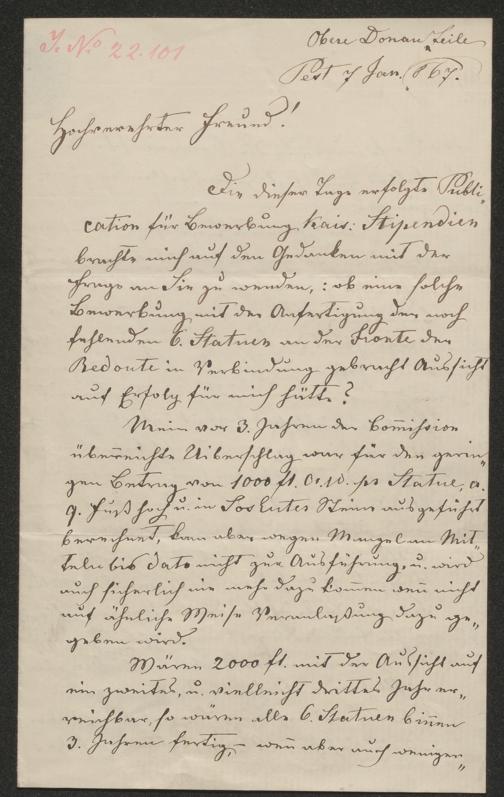 J. No 22.101
Obere Donau Zeile
Pest 7 Jan. 867.
Hochverehrter Freund!
Die dieser Tage erfolgte Publi-
cation für Bewerbung Kais: Stipendien
brachte mich auf den Gedanken mit der
Frage an Sie zu wenden, : ob eine solche
Bewerbung mit der Anfertigung der noch
fehlenden 6. Statuen an der Fronte der
Redoute in Verbindung gebracht Aussicht
auf Erfolg für mich hätte?
Mein vor 3. Jahren der Com̅ission
überreichte Uiberschlag war für den gerin-
gen Betrag von 1000 ft. Oe. W. pr Statue, a.
9. Fuß hoch u. in Soskuter Stein ausgeführt
berechnet, kam aber wegen Mangel an Mit-
teln bis dato nicht zur Ausführung, u. wird
auch sicherlich nie mehr dazu kom̅en wen̅ nicht
auf ähnliche Weise Veranlaßung dazu ge-
geben wird.
Wären 2000 ft. mit der Aussicht auf
ein zweites, u. vielleicht drittes Jahr er-
reichbar, so wären alle 6. Statuen bin̅en
3. Jahren fertig, – wen̅ aber auch weniger-